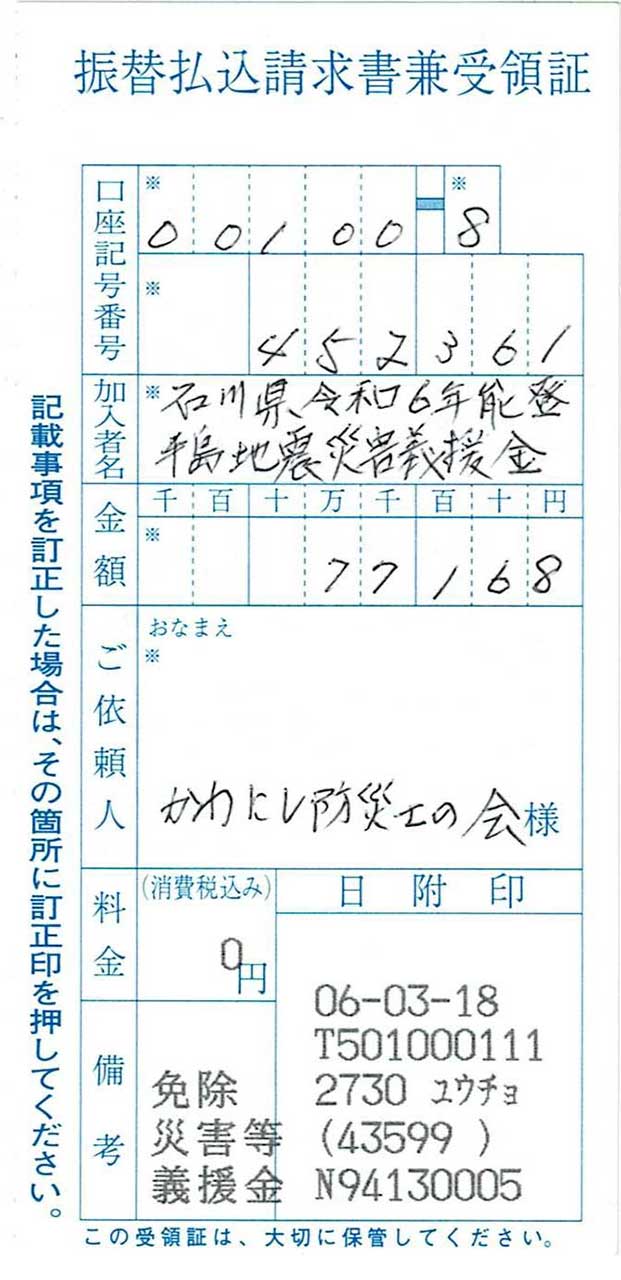 振替払込請求書兼受領証
口座記号番号
※ ※
00100 8
※
452361
加入者名
※ 石川県令和6年能登
半島地震災害義援金
金額
千百十万千百十円
※
77168
ご依頼人
おなまえ
※
かわにし防災士の会様
料金
(消費税込み)
0円
日附印
06-03-18
T501000111
2730 ユウチョ
(43599 )
N94130005
備考
免除
災害等
義援金
記載事項を訂正した場合は、その箇所に訂正印を押してください。
この受領証は、大切に保管してください。